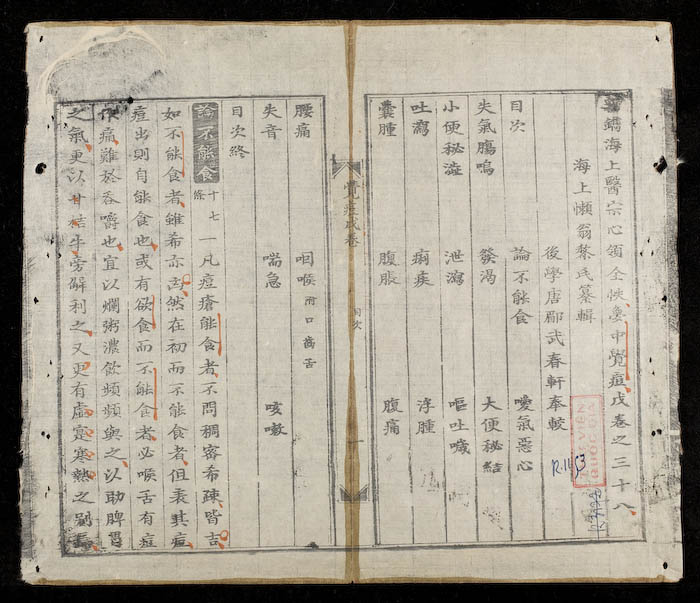 新鐫海上醫宗心領全帙夢中覺痘戊卷之三十八
海上懶翁黎氏纂輯
後學唐郿武春軒奉較
目次 論不能食 噯氣惡心
失氣腸鳴 發渴 大便秘結
小便秘澁 泄瀉 嘔吐噦
吐瀉 痢疾 浮腫
囊腫 腹脹 腹痛
覺痘戊卷 目次 一
腰痛 咽喉附口齒舌
失音 喘急 咳嗽
目次終
論不能食 十七條 一凡痘瘡能食者不問稠密希疎皆吉
如不能食者雖希亦 然在初而不能食者但表其痘
痘出則自能食也或有欲食而不能食者必喉舌有痘
作痛難於吞嚼也宜以爛粥濃飲頻頻與之以助脾胃
之氣更以甘桔牛旁解利之又更有虛寔寒熱之別
R.1153
THƯ VIỆN
QUỐC GIA